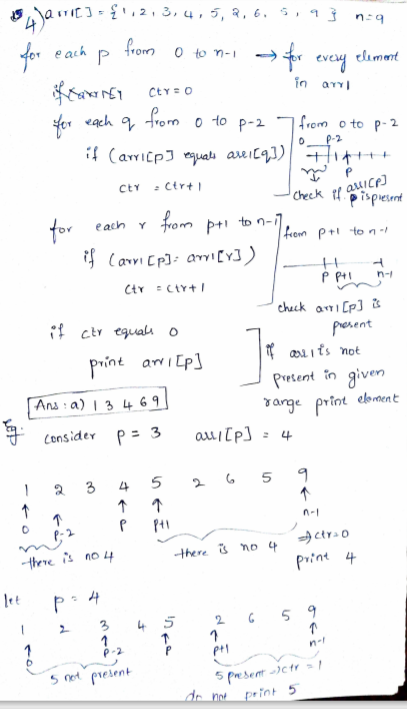 4) arr1[] = {1, 2, 3, 4, 5, 2, 6, 5, 9} n=9
for each p from 0 to n-1 → for every element in arr1
ctr = 0
for each q from 0 to p-2 from 0 to p-2
if (arr1[p] equals arr1[q]) 0 p-2 p
ctr = ctr+1 check if arr1[p] is present
for each r from p+1 to n-1 from p+1 to n-1
if (arr1[p] = arr1[r]) p p+1 n-1
ctr = ctr+1
check arr1[p] is present
if ctr equals 0
print arr1[p]
if arr1 is not present in given range print element
Ans: a) 1 3 4 6 9
Eg: consider p = 3 arr1[p] = 4
1 2 3 4 5 2 6 5 9
↑ ↑ ↑ ↑ ↑
0 p-2 p p+1 n-1
there is no 4 there is no 4 ⇒ ctr=0
print 4
let p = 4
1 2 3 4 5 2 6 5 9
↑ ↑ ↑ ↑ ↑
0 p-2 p p+1 n-1
5 not present 5 present ⇒ ctr = 1
do not print 5